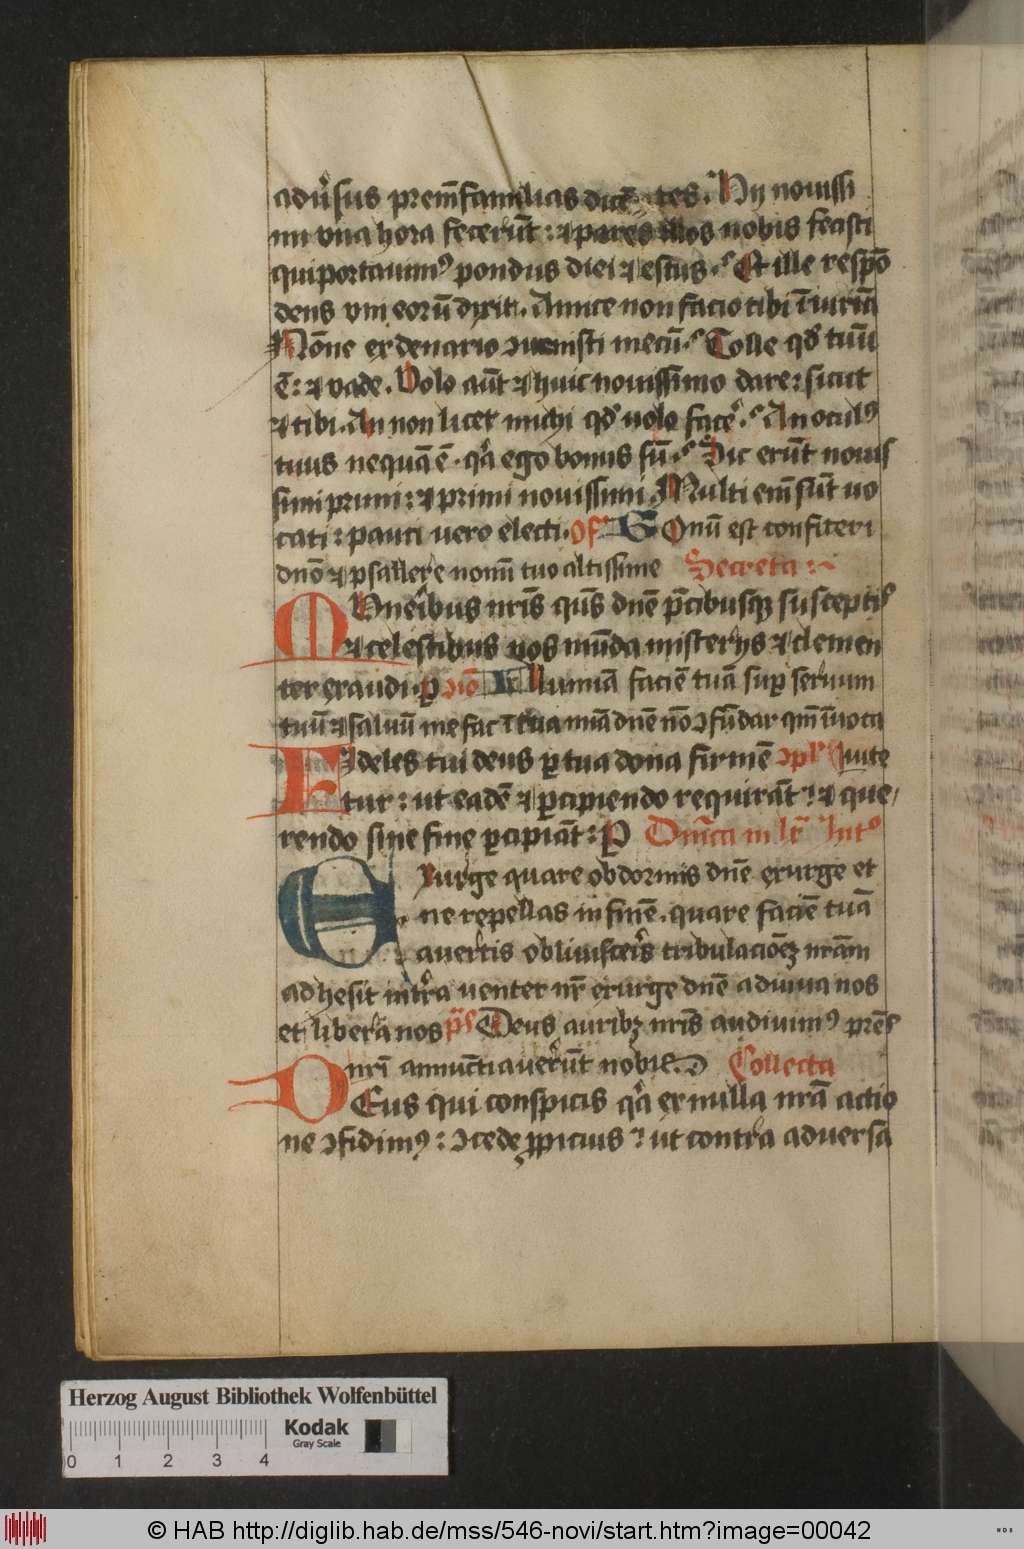 adu̾sus prem̄familias dicē tes. Hy nouissi
mi vna hora fecerūt: ⁊ pares illos nobis fecisti
qui portauimꝰ pondus diei ⁊ estus. Et ille respō
dens vni eorū dixit. Amice non facio tibi īiuriā
Nōne ex denario ꝯuenisti mecū. Tolle qd̓ tuū
ē: ⁊ vade. Volo aūt ⁊ huic nouissimo dare: sicut
⁊ tibi. An non licet michi qd̓ uolo facē. An oculꝰ
tuus nequā ē. qͥa ego bonus sū. Sic erūt nouis
simi primi: ⁊ primi nouissimi. Multi em̄ sūt uo
cati: pauci vero electi. Of Bonū est confiteri
dnō ⁊ psallere nomī tuo altissime Secreta
Mūneribus nr̄is qs̄ dnē p̄cibusqꝫ susceptis
⁊ celestibus nos mūda misterijs ⁊ clemen
ter exaudi ꝑ ꝯiō Illumīa faciē tuā suꝑ seruum
tuū ⁊ saluū me fac ī tua mīa dnē nō ꝯfūdar qm̄ īuoca
Fideles tui deus ꝑ tua dona firmē ꝯpl̄ uite
tur: ut eadē ⁊ ꝑcipiendo requirāt: ⁊ que,
rendo sine fine ꝑcipiāt: P Dn̄ica in lx̄ Intꝰ
Exurge quare obdormis dnē exurge et
ne repellas in finē. quare faciē tuā
auertis obliuisceris tribulacioēꝫ nrām
adhesit in tr̄a uenter nr̄ exurge dnē adiuua nos
et libera nos p̄s Deus auribꝫ nr̄is audiuimꝰ pr̄es
nr̄i annūctiauerūt nobis. Collecta
DEus qui conspicis qͥa ex nulla nrā actio
ne ꝯfidimꝰ: ꝯcede ꝓpicius: ut contra aduersa
Herzog August Bibliothek Wolfenbüttel
Kodak
Gray Scale
0 1 2 3 4
© HAB http://diglib.hab.de/mss/546-novi/start.htm?image=00042